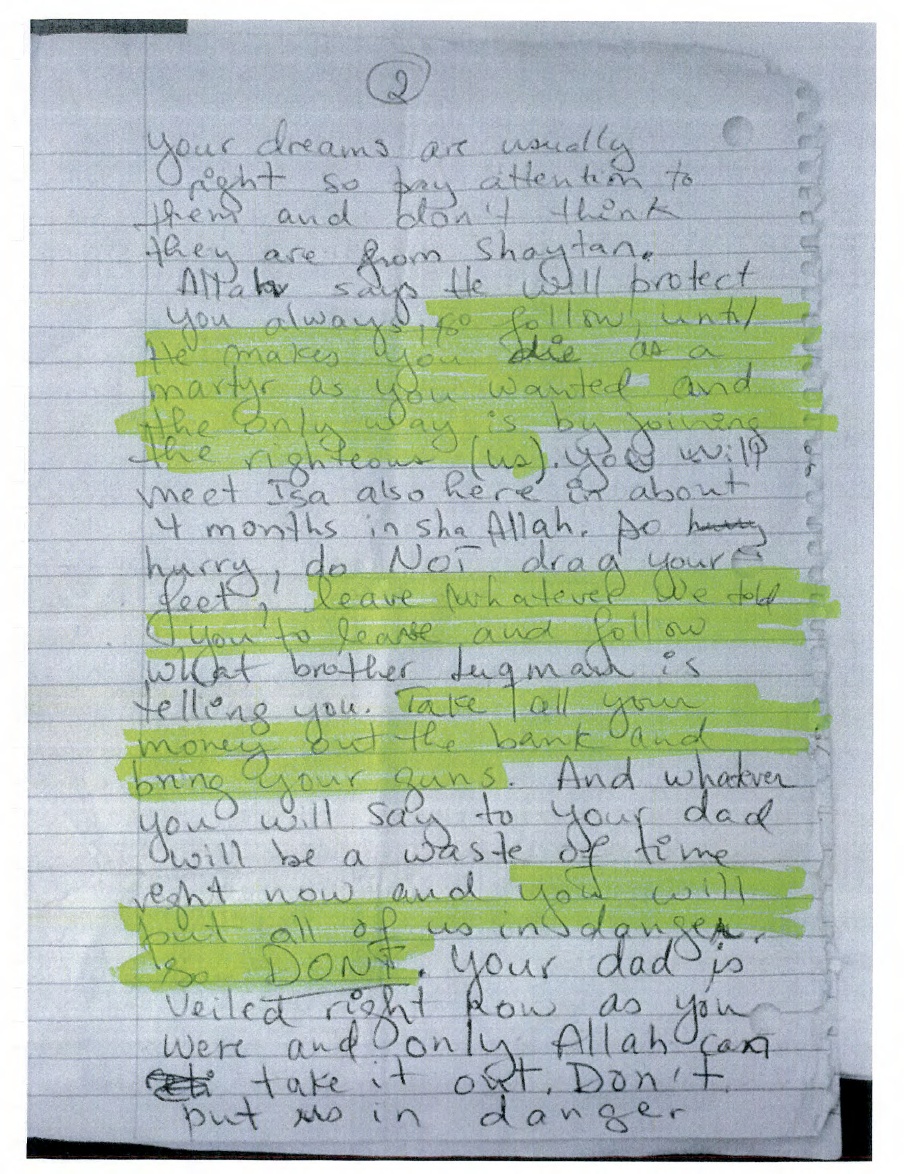 2
your dreams are usually
right so pay attention to
them and don't think
they are from Shaytan.
Allah says He will protect
you always, so follow, until
He makes you die as a
martyr as you wanted and
the only way is by joining
the righteous (us). you will
meet Isa also here in about
4 months in sha Allah. So hurry
hurry, do NOT drag your
feet, leave whatever we told
you to leave and follow
what brother Luqman is
telling you. Take all your
money out the bank and
bring your guns. And whatever
you will say to your dad
will be a waste of time
right now and you will
put all of us in danger.
So DONT. Your dad is
Veiled right now as you
were and only Allah can
take it out. Don't
put us in danger